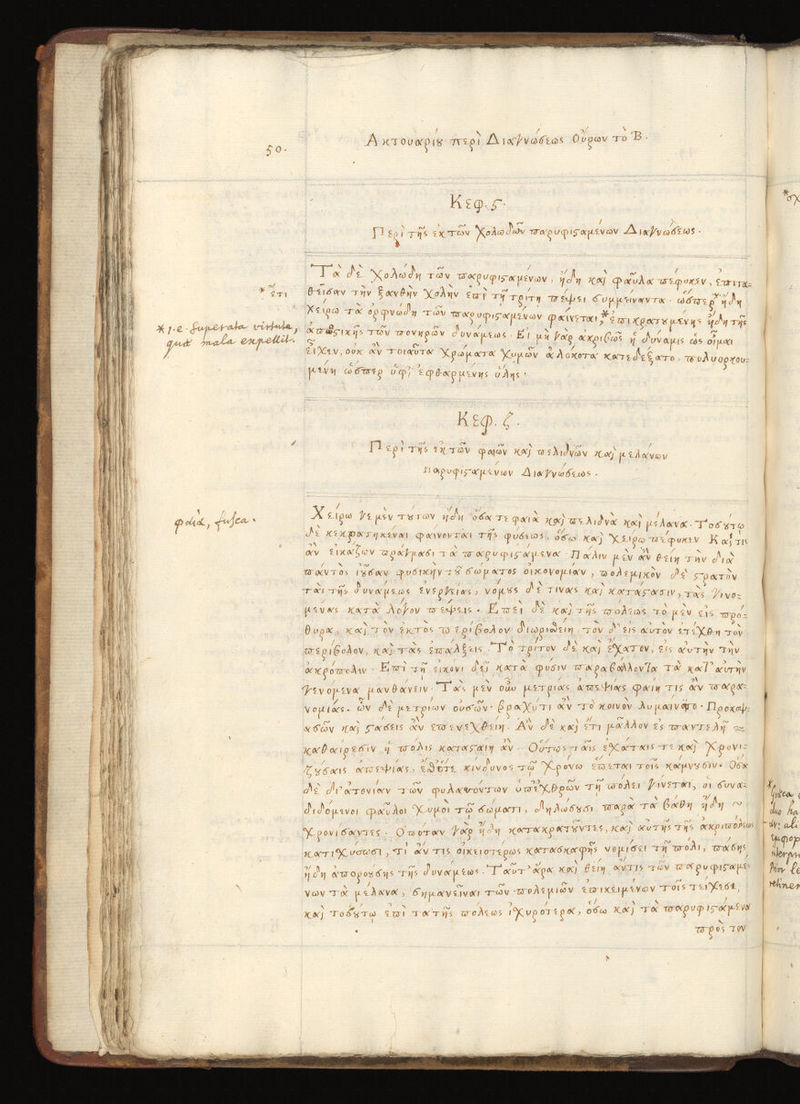 50.
Ακτουαρίȣ περὶ Διαγνώσεως Οὔρων τὸ Β.
Κεφ. ϛ.
Περὶ τῆς ἐκ τῶν χολωδῶν παρυφιϛαμένων Διαγνώσεως.
Τὰ δὲ χολώδη τῶν παρυφιϛαμένων, ἤδη καὶ φαῦλα πέφυκεν, ἐπιτα=
θεῖσαν τὴν ξανθὴν χολὴν ἐπὶ τῇ τρίτῃ πέψει συμμείναντα. ὥσπερ ἤδη
* ἔτι
χείρω τὰ ὀρφνώδη τῶν παρυφιϛαμένων φαίνεται,* ἐπικρατȣμένης ἤδη τῆς
* i.e. superata virtute,
quæ mala expellit.
ἀπωϛικῆς τῶν πονηρῶν δυνάμεως. Εἰ μὴ γὰρ ἀκριβῶς ἡ δύναμις ὡς οἶμαι
εἶχεν, οὐκ ἂν τοιαῦτα χρώματα χυμῶν ἀλόκοτα κατεδέξατο, πολυορκου=
μένη ὥσπερ ὑφ' ἐφθαρμένης ὕλης.
Κεφ. ζ.
Περὶ τῆς ἐκ τῶν φαιῶν καὶ πελιδνῶν καὶ μελάνων
παρυφιϛαμένων Διαγνώσεως.
φαιὰ, fusca.
Χείρω γε μὲν τȣτων ἤδη ὅσα τε φαιὰ καὶ πελιδνὰ καὶ μέλανα. Τοσȣτῳ
δὲ κεκρατηκέναι φαίνονται τῆς φύσεως, ὅσῳ καὶ χείρω πέφυκεν. Καὶ τις
ἂν εἰκάζων πράγμασι τὰ παρυφιϛάμενα. Πάλιν μὲν ἂν θείη τὴν διὰ
παντὸς ἰȣσαν φυσικὴν τȣ σώματος οἰκονομίαν, πολεμικὸν δὲ ϛρατὸν
τὰς τῆς δυνάμεως ἐνεργείας, νόμȣς δὲ τινας καὶ κατάϛασιν, τὰς γινο=
μένας κατὰ λόγον πέψεις. Ἐπεὶ δὲ καὶ τῆς πόλεως τὸ μὲν εἰς πρό=
θυρα, καὶ τὸν ἐκτὸς περίβολον διωρισθείη. τὸν δ' εἰς αὐτὸν ἐτέχθη τὸν
περίβολον, καὶ τὰς ἐπάλξεις. Τὸ τρίτον δὲ καὶ ἔχατον, εἰς αὐτὴν τὴν
ἀκρόπολιν. Ἐπὶ τῇ εἰκόνι δεῖ κατὰ φύσιν παραβάλλοντα τὰ κατ' αὐτὴν
γενόμενα μανθάνειν. Τὰς μὲν οὖν μετρίας ἀπεψίας φαίη τις ἂν παρα=
νομίας. ὧν δὲ μετρίων οὐσῶν. βραχύ τι ἂν τὸ κοινὸν λυμαίνοιτο. Προκοψ
ασῶν καὶ ϛάσεις ἂν ἐπενεχθείη. Ἂν δὲ καὶ ἔτι μᾶλλον ἐς παντελῆ
καθαίρεσιν ἡ πόλις καταϛαίη ἄν. Οὕτως ταῖς ἐχάταις τε καὶ χρονι=
ζȣσαις ἀπεψίας, κίνδυνος τῷ χρόνῳ ἕπεται τοῖς κάμνȣσιν. Ὅσα
δὲ δι' ἀτονίαν τῶν φυλαττόντων ὑπ' ἐχθρῶν τῇ πόλει γίνεται, οἱ συνα=
διδόμενοι φαῦλοι χυμοὶ τῷ σώματι, δηλώσȣσι παρὰ τὰ βάθη ἤδη
χρονίσαντες. Ὁπόταν γὰρ ἤδη κατακρατȣντες, καὶ αὐτῆς τῆς ἀκροπόλεως
κατιχύσωσι, τί ἄν τις οἰκειοτέρως κατασκαφῆς νομίσει τῇ πόλι, πάσης
ἤδη ἀπορούσης τῆς δυνάμεως. Ταῦτ' ἄρα καὶ θείη ἄν τις τῶν παρυφιϛαμέ
νων τὰ μέλανα, σημανεῖναι τῶν πολεμίων ἐπικειμένων τοῖς τείχεσι,
καὶ τοσȣτῳ ἐπὶ τὰ τῆς πόλεως ἰχυρότερα, ὅσῳ καὶ τὰ παρυφιϛάμενα
πρὸς τὸν